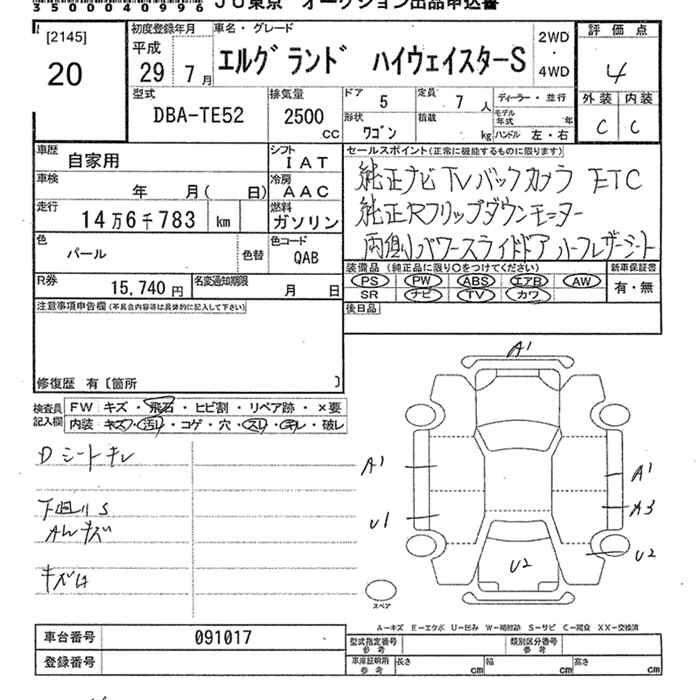 35000040996 JU東京 オークション出品申込書
[2145]
20
初度登録年月
平成
29年 7月
車名・グレード
エルグランド ハイウェイスターS
2WD
・
4WD
評価点
4
外装 内装
C C
型式
DBA-TE52
排気量
2500
CC
ドア 5
定員 7人
ディーラー・並行
形状 ワゴン
積載 kg
モデル年式 年
ハンドル 左・右
車歴 自家用
シフト IAT
車検 年 月( 日)
冷房 AAC
走行 14万6千783 km
燃料 ガソリン
色 パール 色替
色コード QAB
R券 15,740円
名変通知期限 月 日
セールスポイント(正常に機能するものに限ります)
純正ナビ TVバックカメラ ETC
純正Rフリップダウンモニター
両側パワースライドドア ハーフレザーシート
装備品 (純正品に限り○をつけてください)
新車保証書
PS PW ABS エアB AW
有・無
SR ナビ TV カワ
後日品
注意事項申告欄(不具合内容等は具体的に記入して下さい)
修復歴 有〔箇所 〕
検査員記入欄
FW キズ・飛石・ヒビ割・リペア跡・×要
内装 キズ・汚レ・コゲ・穴・スレ・キレ・破レ
Dシートキレ
下回りS
AWキズ
A1
A1
U1
A1
A3
U2
U2
スペア
A-キズ E-エクボ U-凹み W-補修跡 S-サビ C-腐食 XX-交換済
車台番号 091017
登録番号
型式指定番号
参考
類別区分番号
参考
車庫証明用
参考
長さ cm
幅 cm
高さ cm